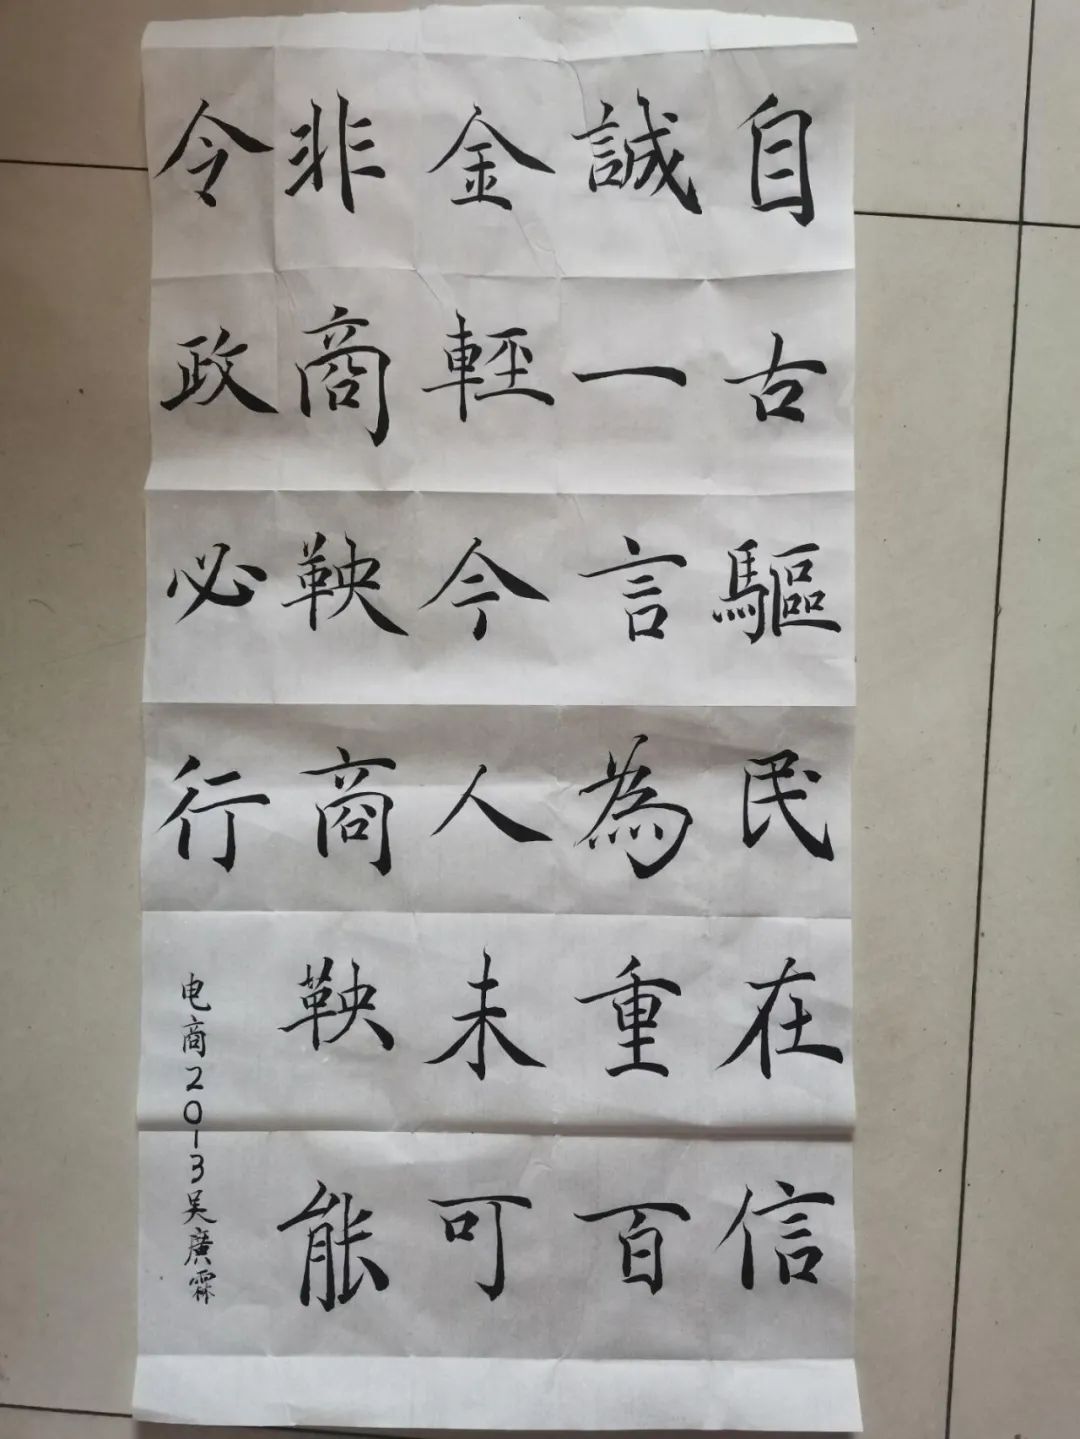 自古驅民在信
誠一言為重百
金輕今人未可
非商鞅商鞅能
令政必行
电商2013吴廣霖